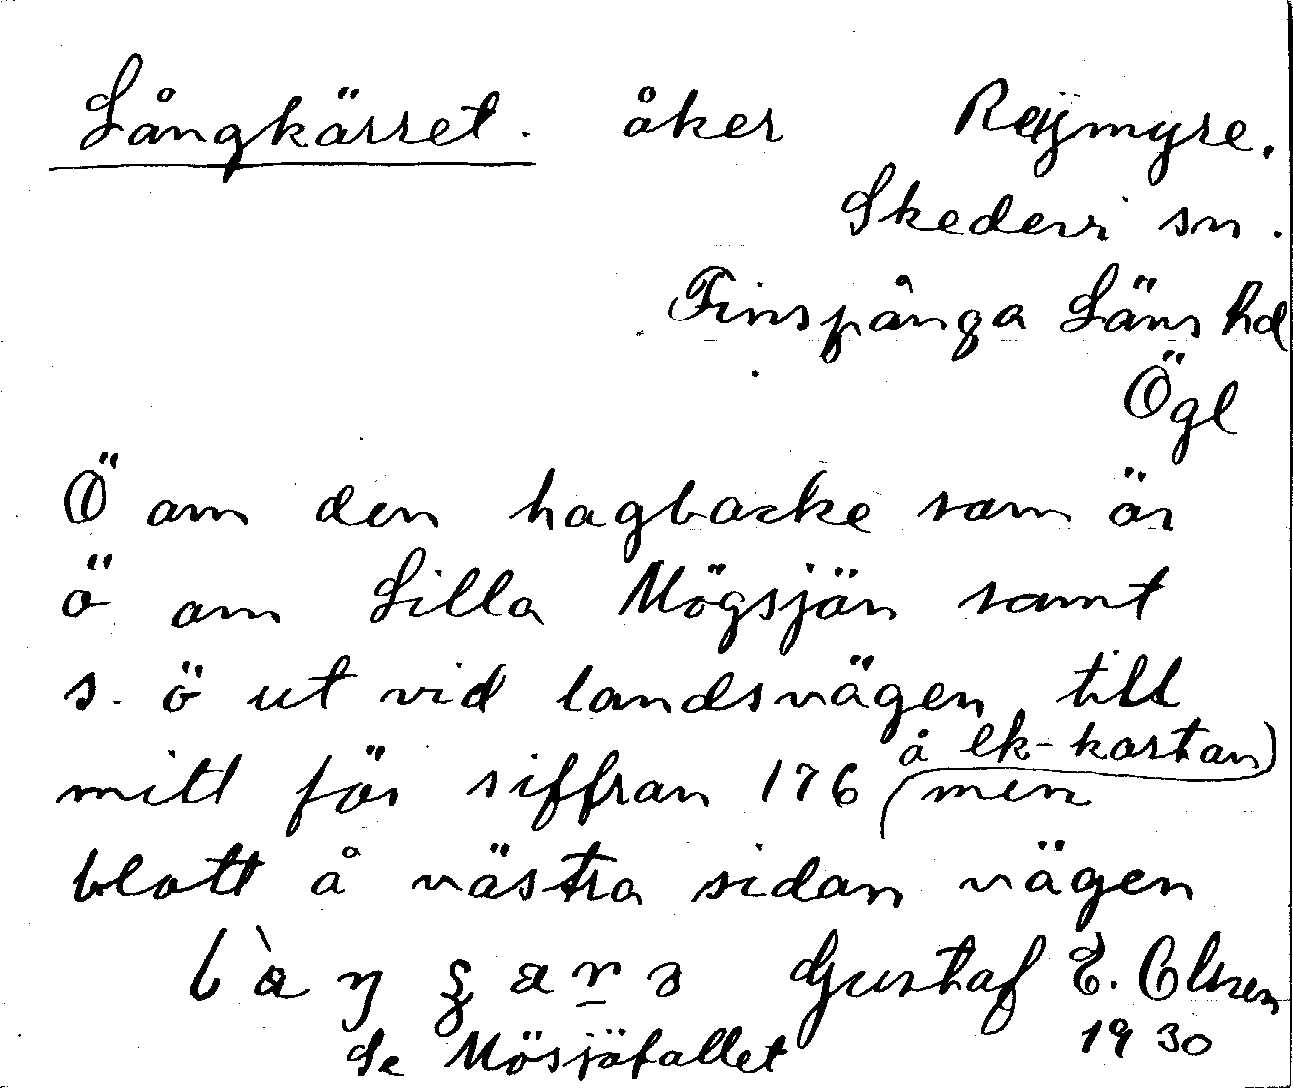 Långkärret. åker Rejmyre.
Skedevi sn.
Finspånga Läns hd
Ögl
Ö om den hagbacke som är
ö om Lilla Mögsjön samt
s. ö ut vid landsvägen till
mitt för siffran 176 (å ek-kartan) men
blott å västra sidan vägen
Gustaf E. Olsson
Se Mösjöfallet 1930